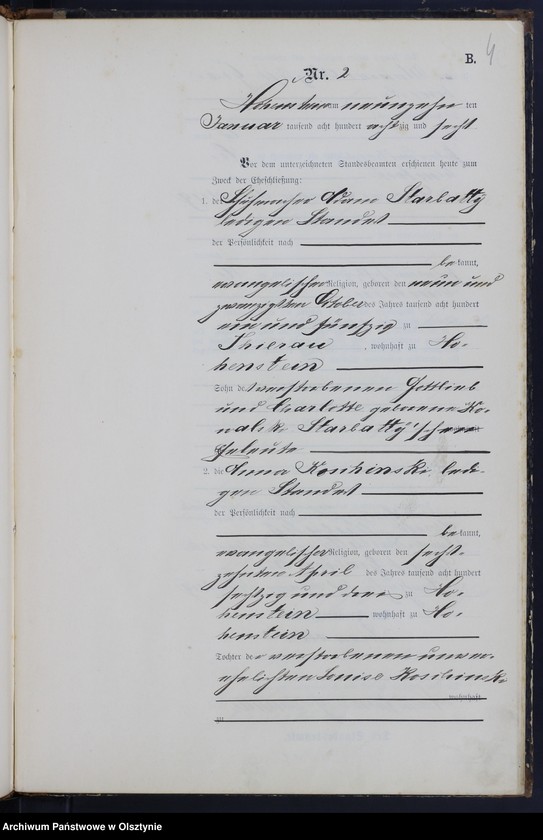 B. 4
Nr. 2
Hohenstein am neunzehn ten
Januar tausend acht hundert achtzig und sechs
Vor dem unterzeichneten Standesbeamten erschienen heute zum
Zweck der Eheschließung:
1. der Schuhmacher Adam Starbatty
ledigen Standes
der Persönlichkeit nach
bekannt,
evangelischer Religion, geboren den neun und
zwanzigsten October des Jahres tausend acht hundert
ein und fünfzig zu
Thierau, wohnhaft zu Ho-
henstein
Sohn der verstorbenen Gottlieb
und Charlotte geborene Ko-
walski Starbatty'schen
Eheleute
2. die Anna ledi-
gen Standes
der Persönlichkeit nach
bekannt,
evangelischer Religion, geboren den sech-
zehnten April des Jahres tausend acht hundert
sechzig und drei zu Ho-
henstein wohnhaft zu Ho-
henstein
Tochter der verstorbenen unver-
ehelichten Louise
wohnhaft
zu
Archiwum Państwowe w Olsztynie